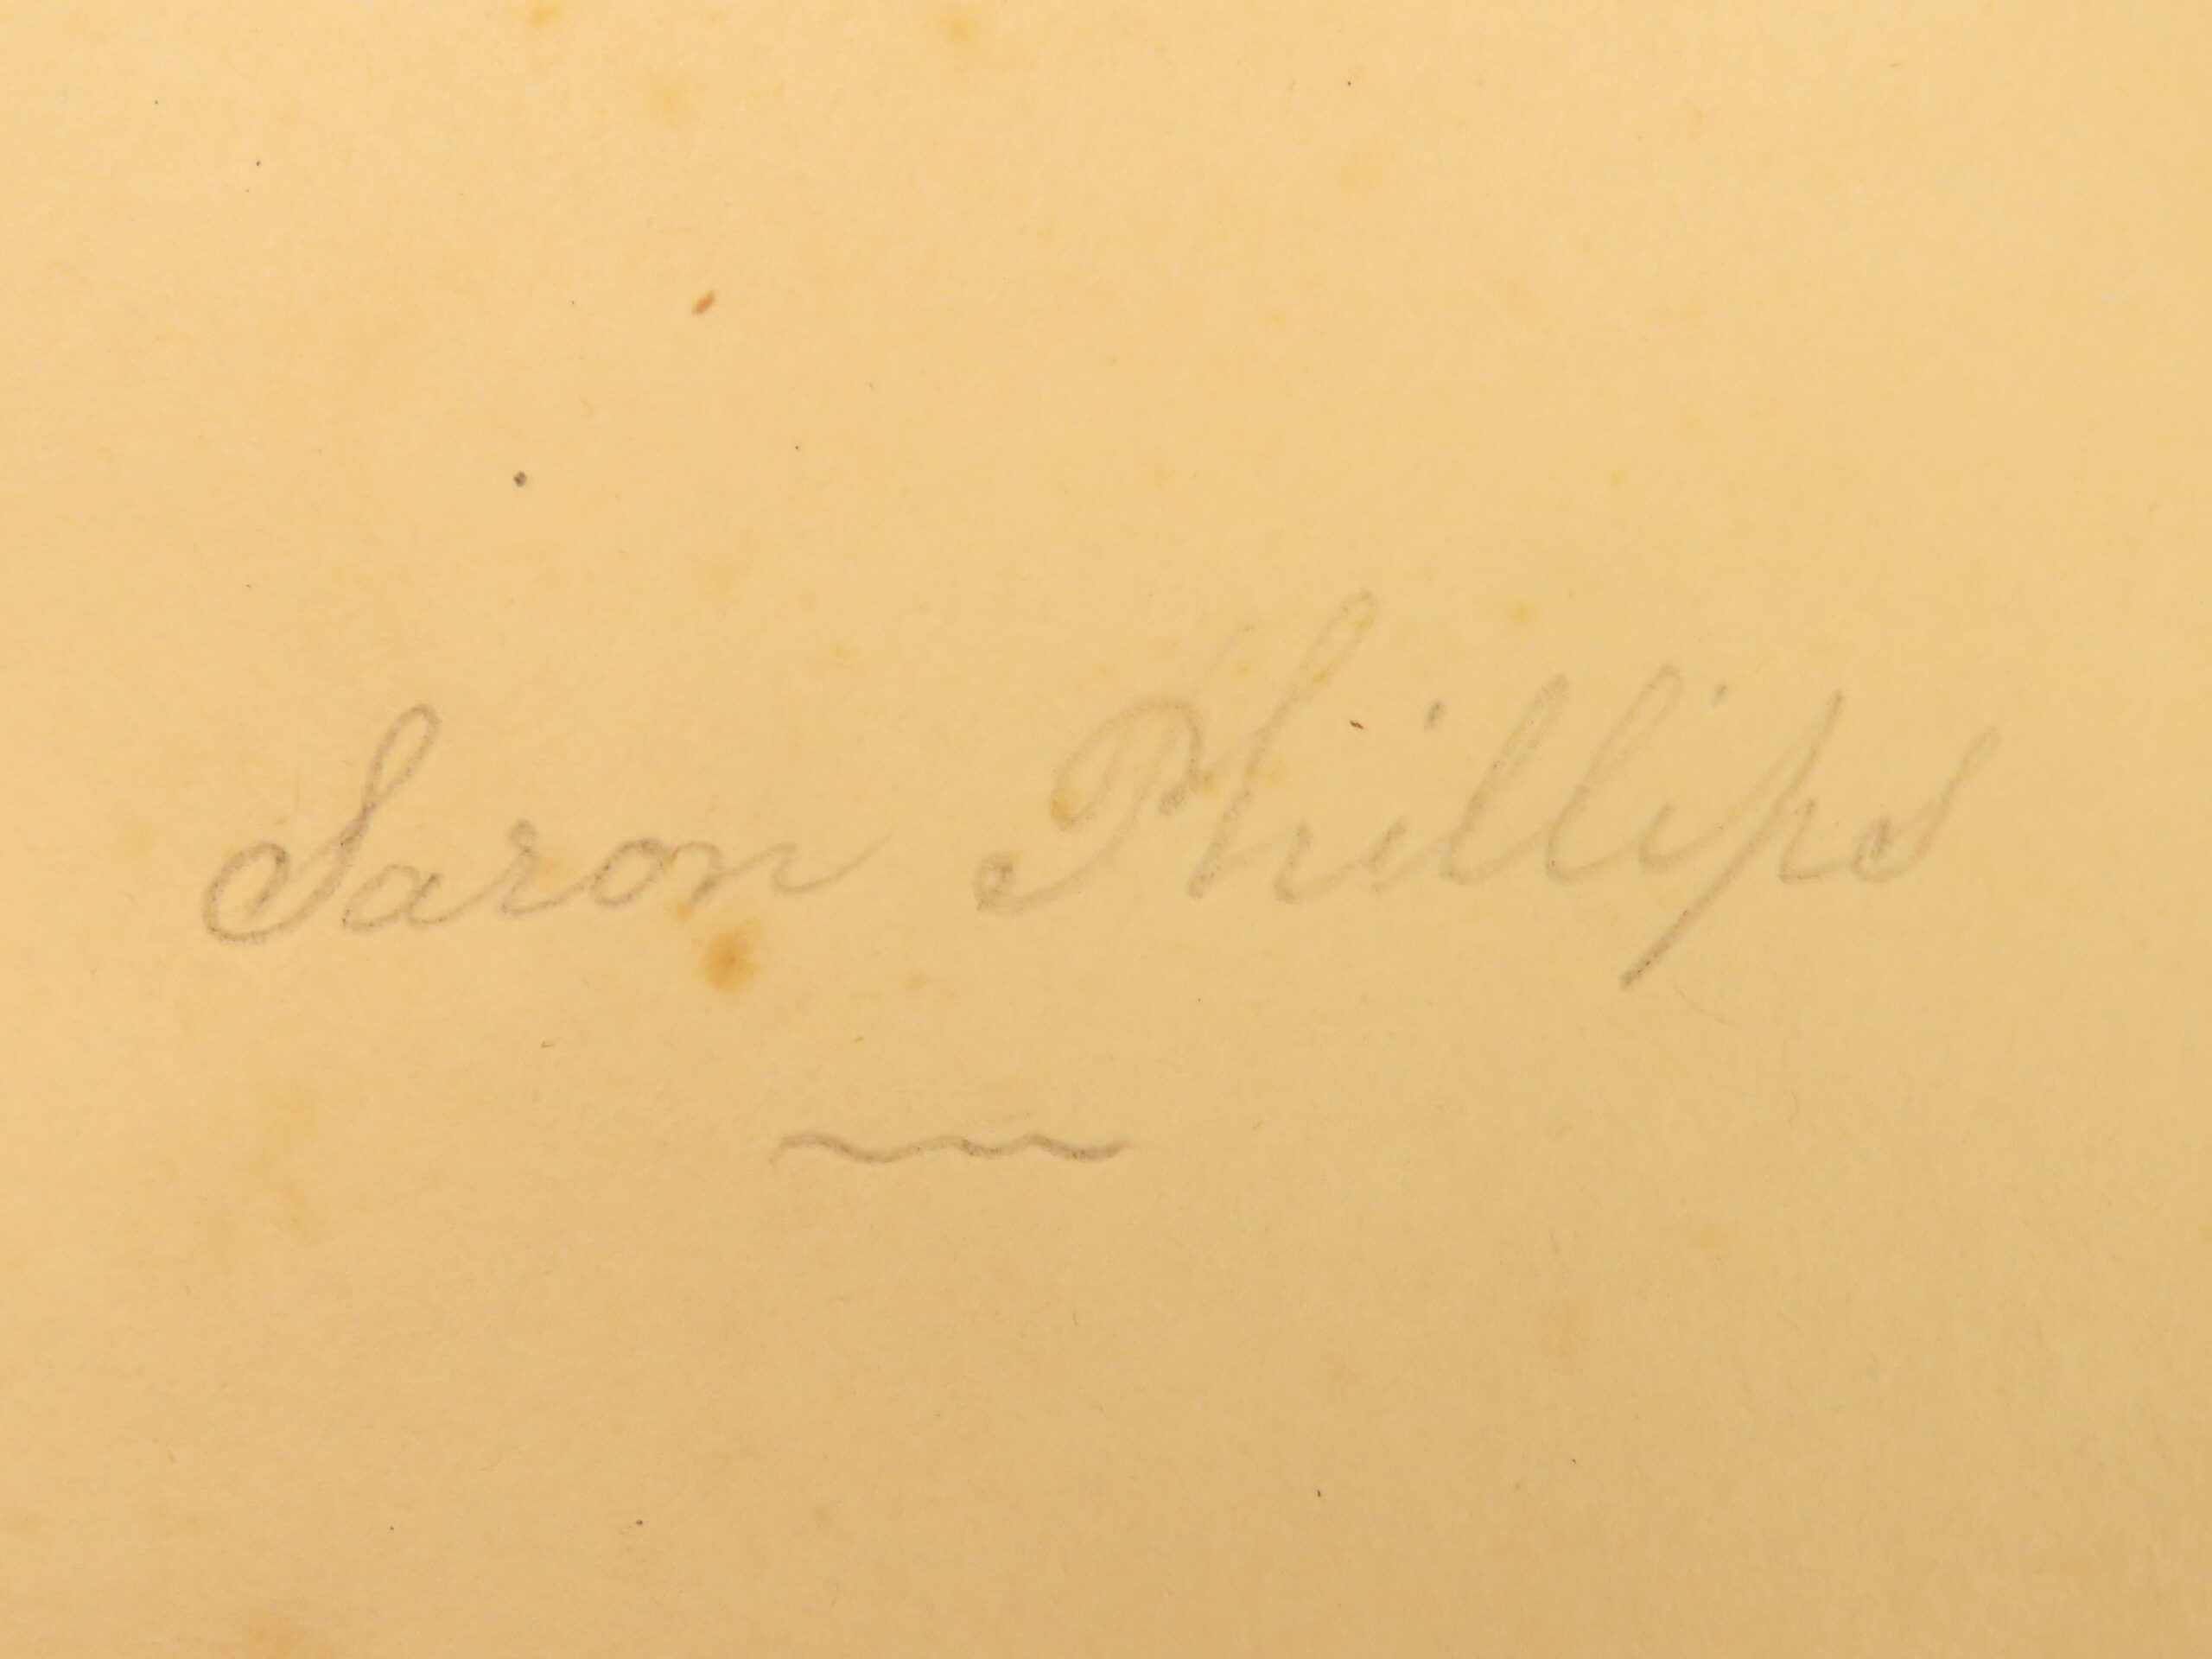 Saron Phillips